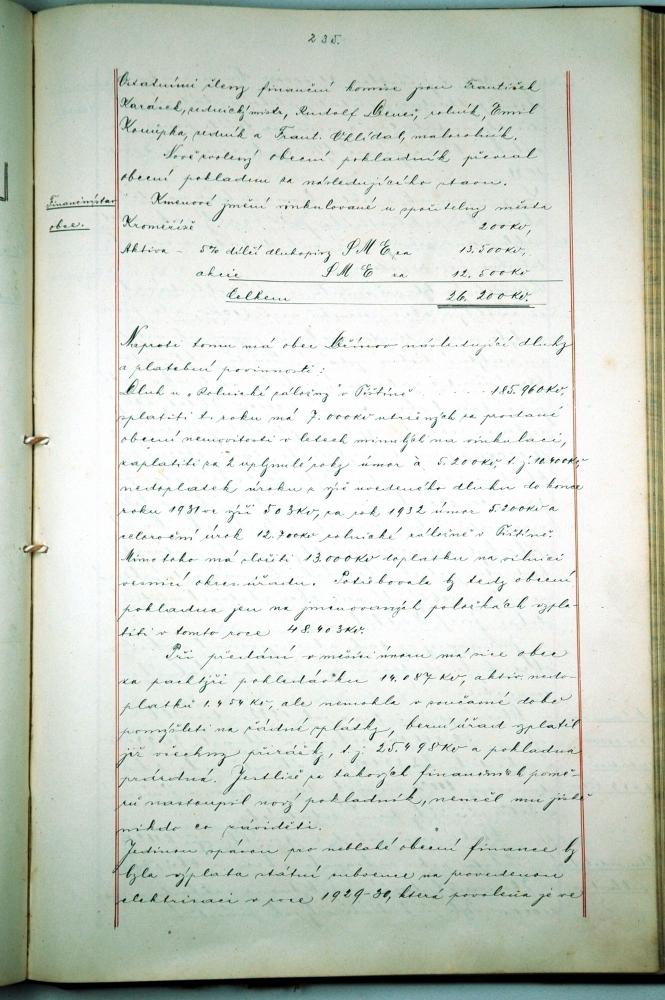 235.
Ostatními členy finanční komise jsou František
Karásek, sednický mistr, Rudolf Beneš, rolník, Emil
Konupka, sedník a Frant. Ohlídal, malorolník.
Nově zvolený obecní pokladník převzal
obecní pokladnu za následujícího stavu.
Finanční stav
obce.
Kmenové jmění vinkulované u spořitelny města
Kroměříže 200 Kč,
Aktiva - 5% dílčí dluhopisy SME za 13.500 Kč,
akcie SME za 12.500 Kč
Celkem 26.200 Kč.
Naproti tomu má obec následující dluhy
a platební povinnosti:
Dluh u "Rolnické záložny" v Pitíně 185.960 Kč,
splatiti t. roku má 7.000 Kč utržených za prodané
obecní nemovitosti v letech minulých na vinkulaci,
zaplatiti za 2 uplynulé roky úmor à 5.200 Kč, t. j. 10.400 Kč,
nedoplatek úroku z výše uvedeného dluhu do konce
roku 1931 ve výši 503 Kč, za rok 1932 úmor 5200 Kč a
celoroční úrok 12.300 Kč rolnické záložně v Pitíně.
Mimo toho má složiti 13.000 Kč doplatku na silnici
okres. úřadu. Potřebovala by tedy obecní
pokladna jen na jmenovaných položkách vypla-
titi v tomto roce 48.403 Kč.
Při předání v měsíci únoru má sice obec
za pachtýři pohledávku 14.087 Kč, aktiv. nedo-
platků 1.454 Kč, ale nemohla v současné době
pomýšleti na řádné splátky, berní úřad vyplatil
již všechny přirážky, t. j. 25.498 Kč a pokladna
prázdná. Jestliže za takových finančních pomě-
rů nastoupil nový pokladník, neměl mu jistě
nikdo co záviděti.
Jedinou spásou pro neblahé obecní finance by
byla výplata státní subvence na provedenou
elektrisaci v roce 1929-30, která povolena je ve